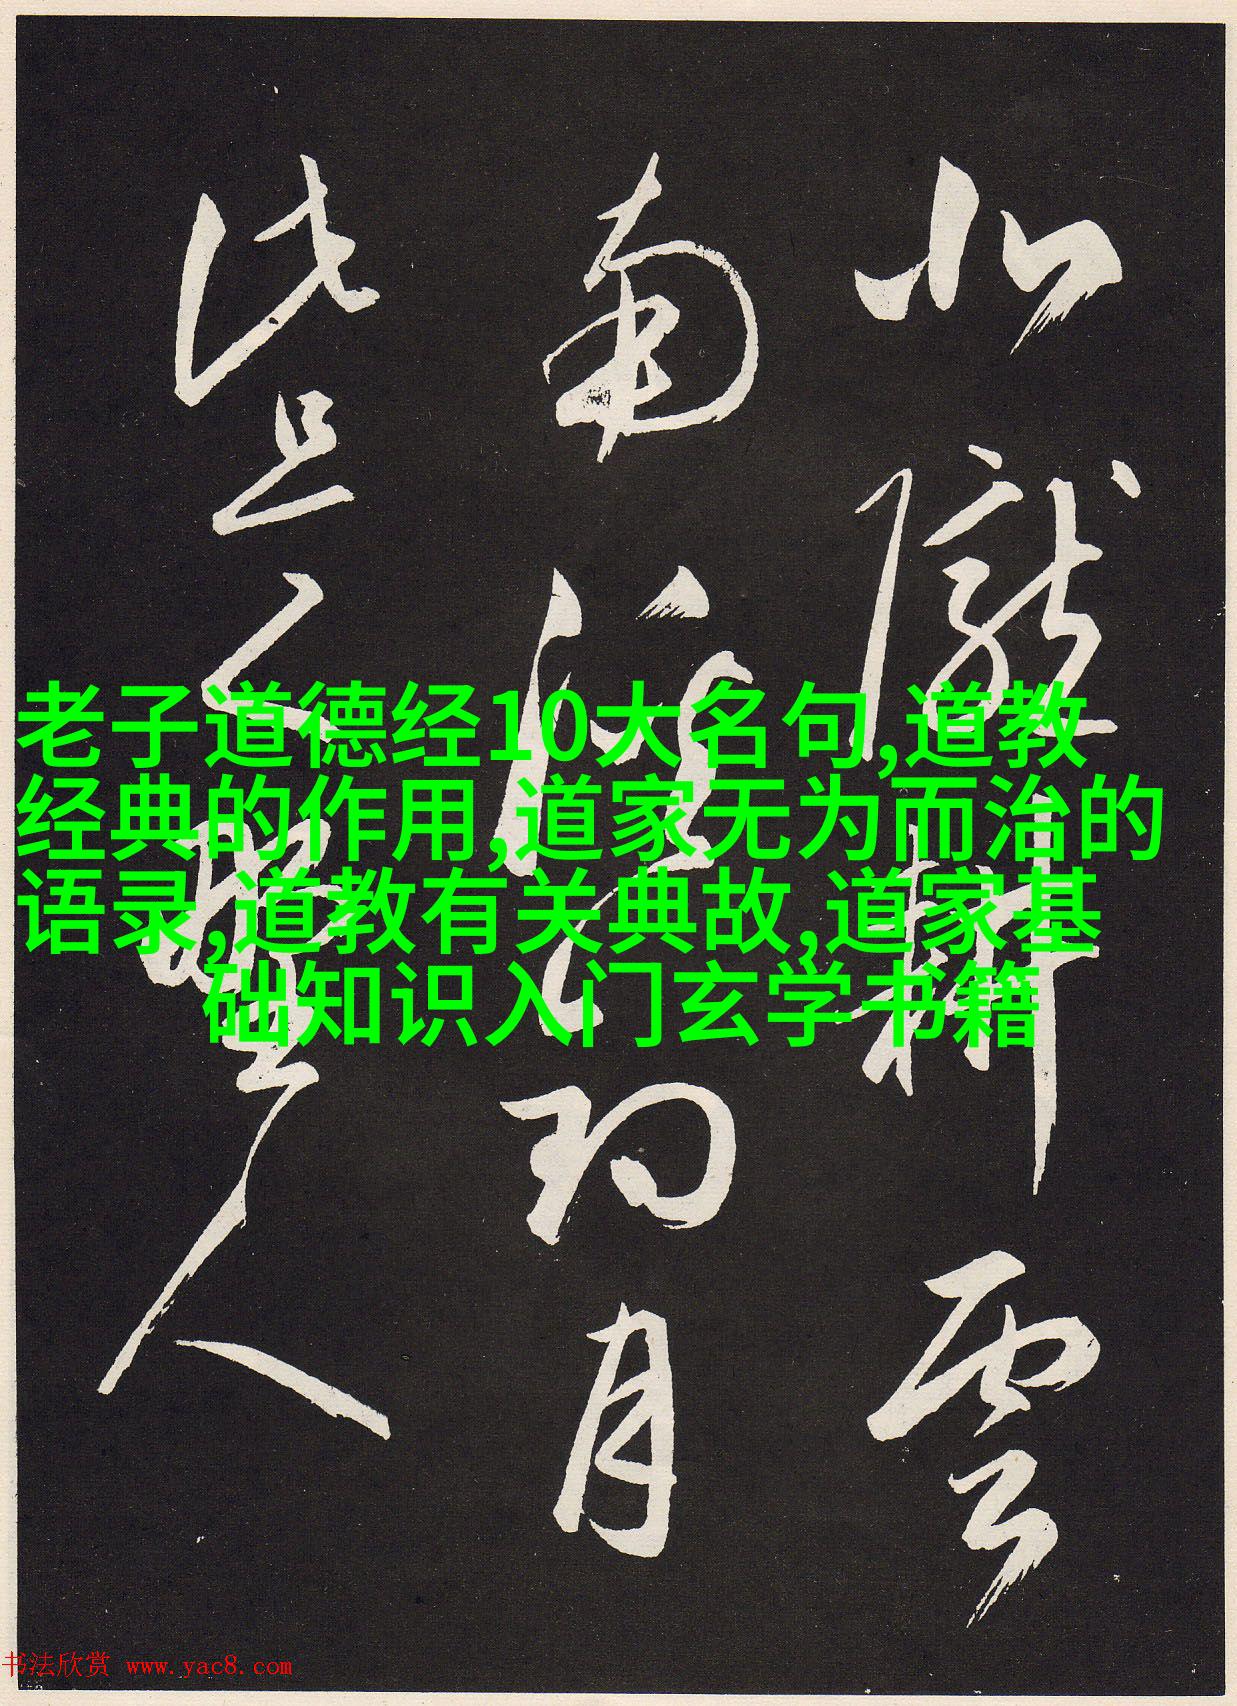 北隴耕雲
南溪釣月
此是野人
老子道德经10大名句,道教
经典的作用,道家无为而治的
语录,道教有关典故,道家基
础知识入门玄学书籍
书法欣赏 www.yac8.com